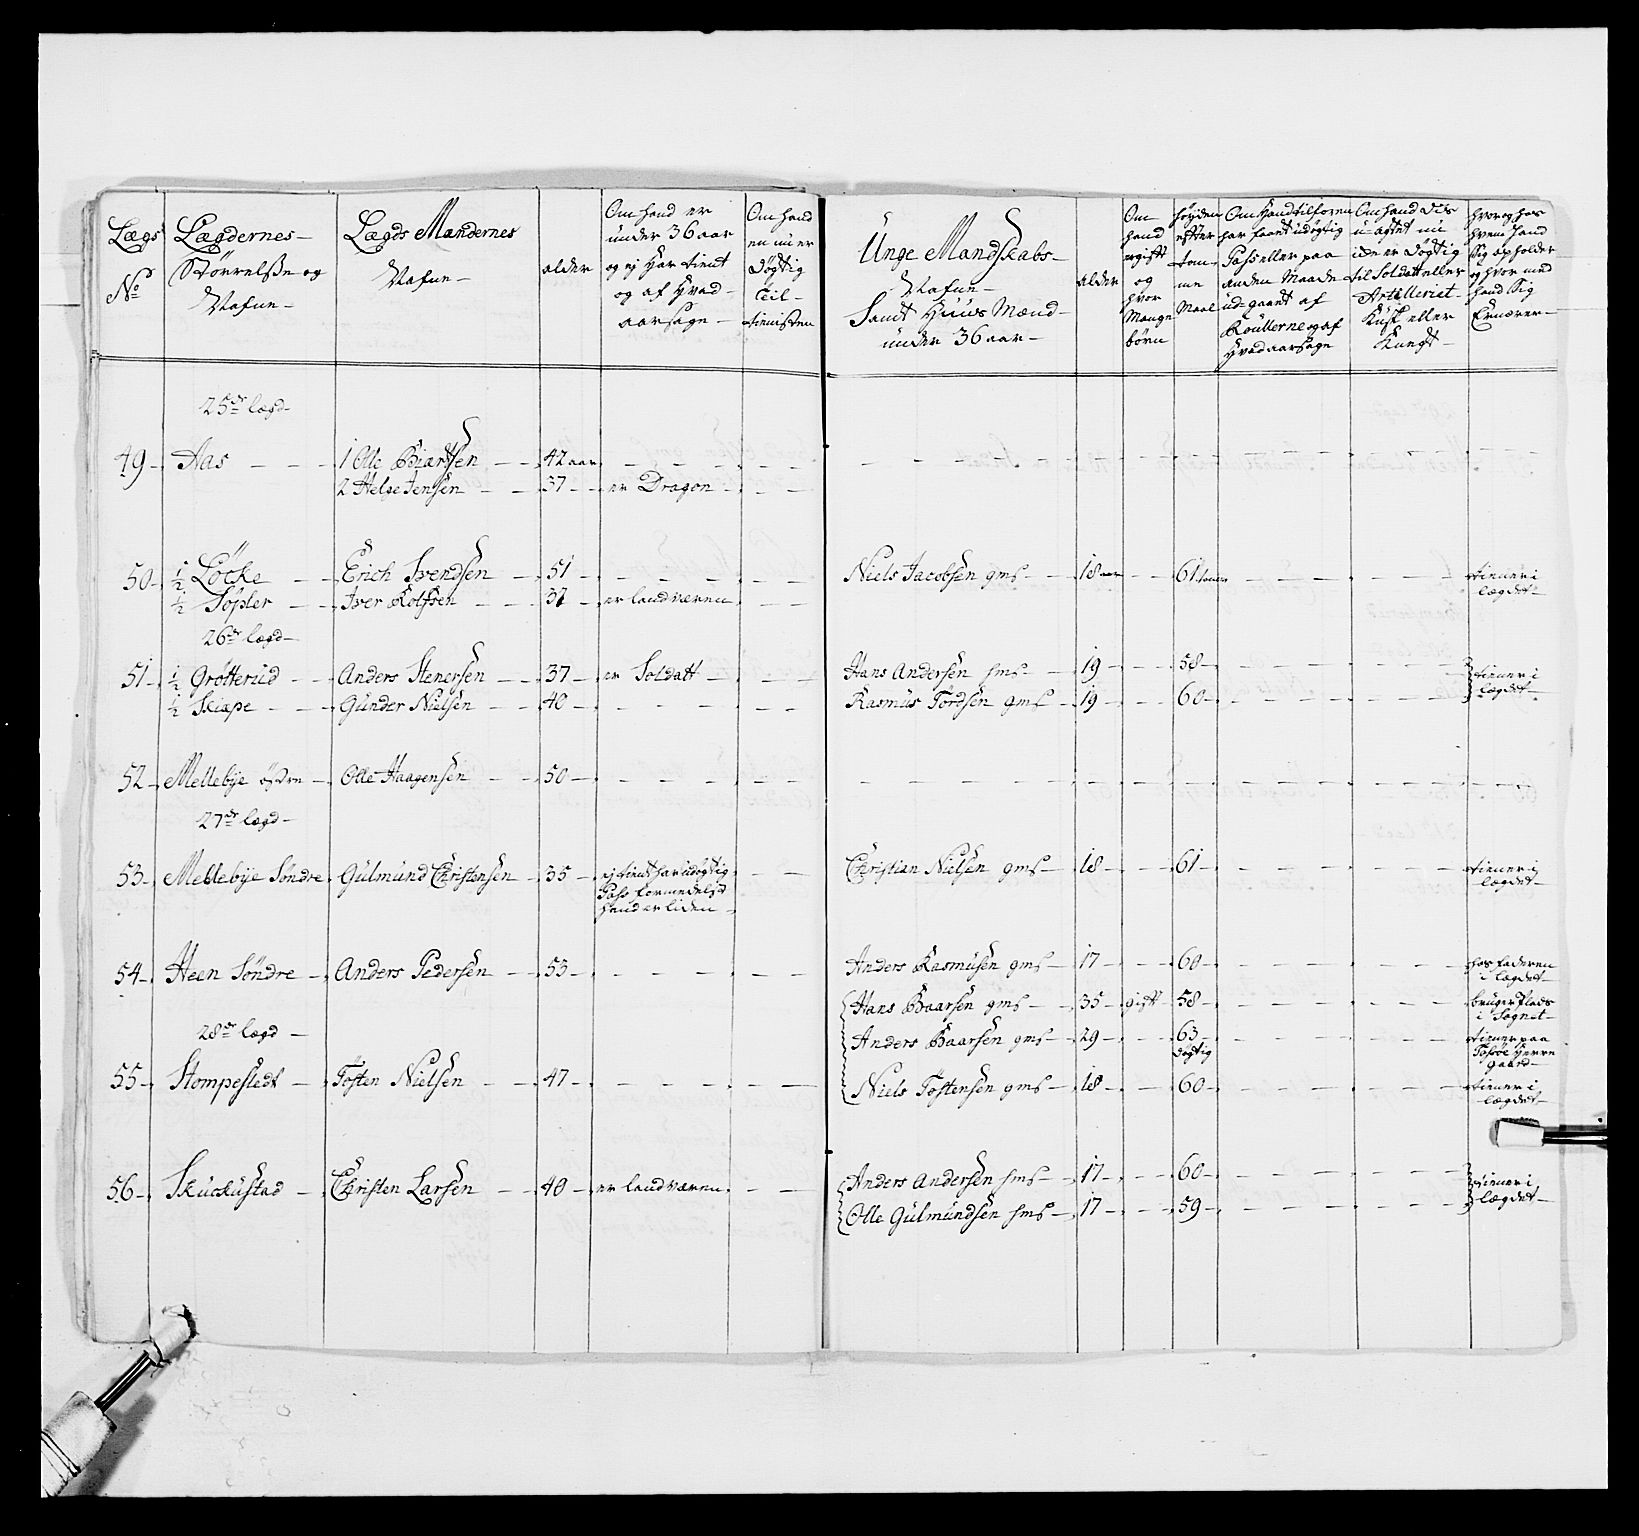 Lægs
No
Lægdernes
Størrelse og
Nafne
Lægds Mændernes
Nafne
alder
Om hand er
under 36 aar
og ej har tient
og af hvad
aarsage
Om hand
en nu er
døgtig
til
tienisten
Unge Mandskabs
Nafne
Samt Huus Mænd
under 36 aar
alder
Om
hand
er gift
og
hvor
Mange
børn
høyden
efter
tom-
me
Maal
Om hand tilforen
har faaet udøgtig
Pass eller paa
anden Maade
ud-gaaet af
Roullerne og af
hvad aarsage
Om hand vis
u-agtet nu
ide er døgtig
til Soldatt eller
Artelleriet
Kusk eller
Knegt
hvor og hos
hvem hand
Sig opholder
og hvor med
hand Sig
Ernærer
25de lægd
49 Aas 1 Olle Biørtsen 42 aar
2 Helge Jensen 37 er Dragon
50 1/2 Løcke Erich Svendsen 51 Niels Jacobsen gms 18 aar 61 tomer tiener i lægdet
1/2 Sopler Iver Rolfsen 37 er landværen
26de lægd
51 1/2 Grøtterud Anders Stenersen 37 er Soldatt Hans Andersen hms 19 58 tiener i lægdet
1/2 Skiæpe Gunder Nielsen 40 Rasmus Tordsen gms 19 60
52 Mellebye østre Olle Haagensen 50
27de lægd
53 Mellebye Søndre Gulmund Christensen 35 ej tient har udøgtig Pass formedelst hand er liden Christian Nielsen gms 18 61 tiener i lægdet
54 Heen Søndre Anders Pedersen 53 Anders Rasmusen gms 17 60 hos faderen i lægdet
Hans Baarsen gms 35 gift 58 bruger Plads i Sognet
28de lægd
Anders Baarsen gms 29 63 døgtig tiener paa Herre gaard
55 Stompestedt Tosten Nielsen 47 Niels Tostensen gms 18 60 tiener i lægdet
56 Skuckustad Christen Larsen 40 er landværen Anders Andersen hms 17 60 tiener i lægdet
Olle Gulmundsen hms 17 59